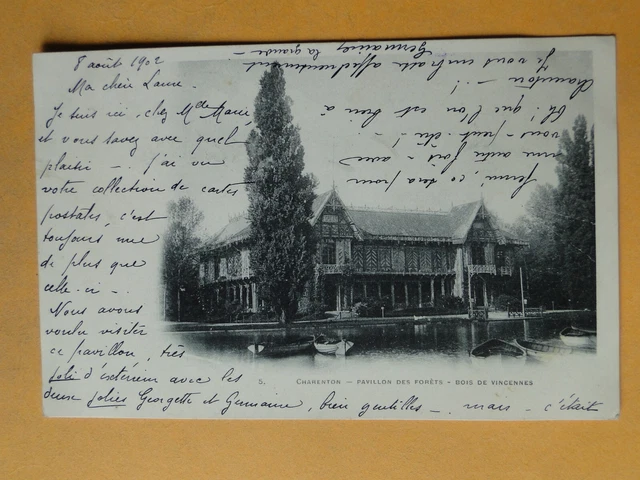 8 août 1902
Ma chère Laure
Je suis ici, chez Mde Marie
et vous savez avec quel
plaisir -. j'ai vu
votre collection de cartes
postales, c'est
toujours une
de plus que
celle-ci -.
Nous avons
voulu visiter
ce pavillon, très
joli d'extérieur avec les
deux jolies Georgette et Germaine, bien gentilles -. mais - c'était
fermé, ce sera pour
une autre fois - avec
vous - peut-être! -
Oh! que l'on est bien à
Charenton - !
Je vous embrasse affectueusement
Germaine la grande -
5. CHARENTON — PAVILLON DES FORÊTS - BOIS DE VINCENNES